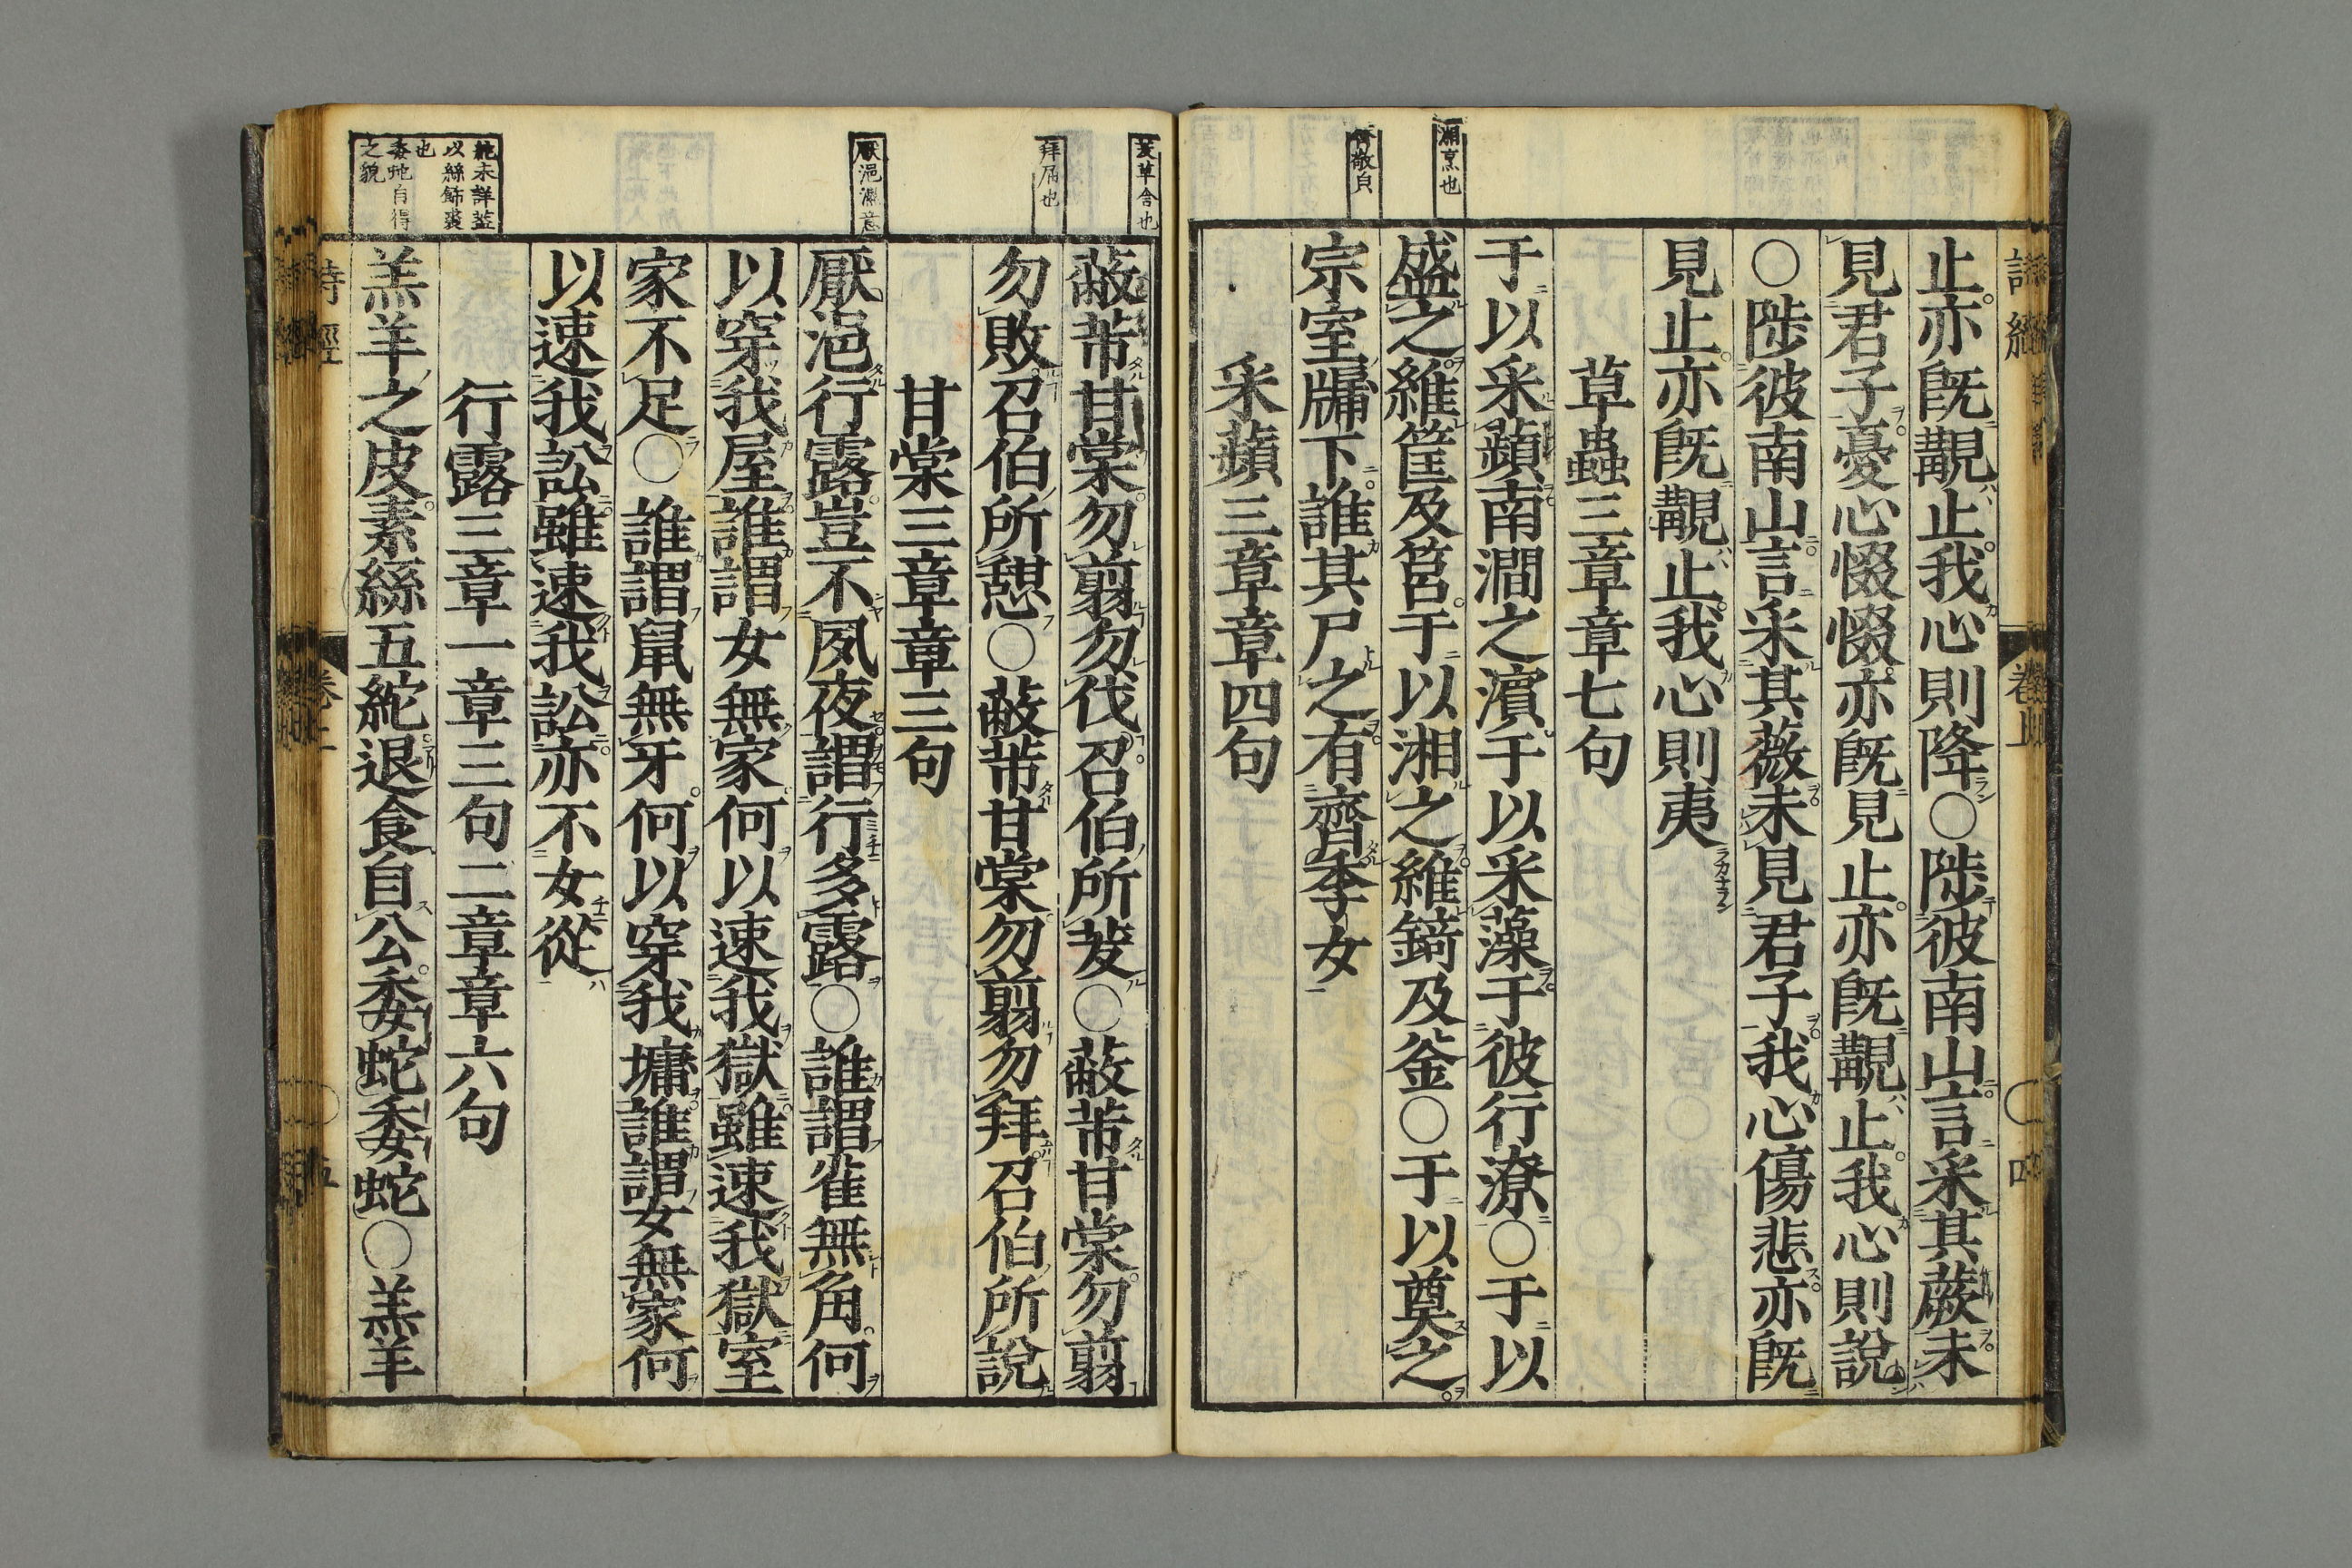 止亦旣覯止我心則降○陟彼南山言采其蕨未
見君子憂心惙惙亦旣見止亦旣覯止我心則說
○陟彼南山言采其薇未見君子我心傷悲亦旣
見止亦旣覯止我心則夷
草蟲三章章七句
湘烹也
于以采蘋南澗之濱于以采藻于彼行潦○于以
盛之維筐及筥于以湘之維錡及釜○于以奠之
宗室牖下誰其尸之有齊季女
采蘋三章章四句
茇草舍也
蔽芾甘棠勿翦勿伐召伯所茇○蔽芾甘棠勿翦
拜屈也
勿敗召伯所憩○蔽芾甘棠勿翦勿拜召伯所說
甘棠三章章三句
厭浥濕意
厭浥行露豈不夙夜謂行多露○誰謂雀無角何
以穿我屋誰謂女無家何以速我獄雖速我獄室
家不足○誰謂鼠無牙何以穿我墉誰謂女無家何
以速我訟雖速我訟亦不女從
行露三章一章三句二章章六句
紽未詳蓋
以絲飾裘
也
委蛇自得
之貌
羔羊之皮素絲五紽退食自公委蛇委蛇○羔羊
詩經